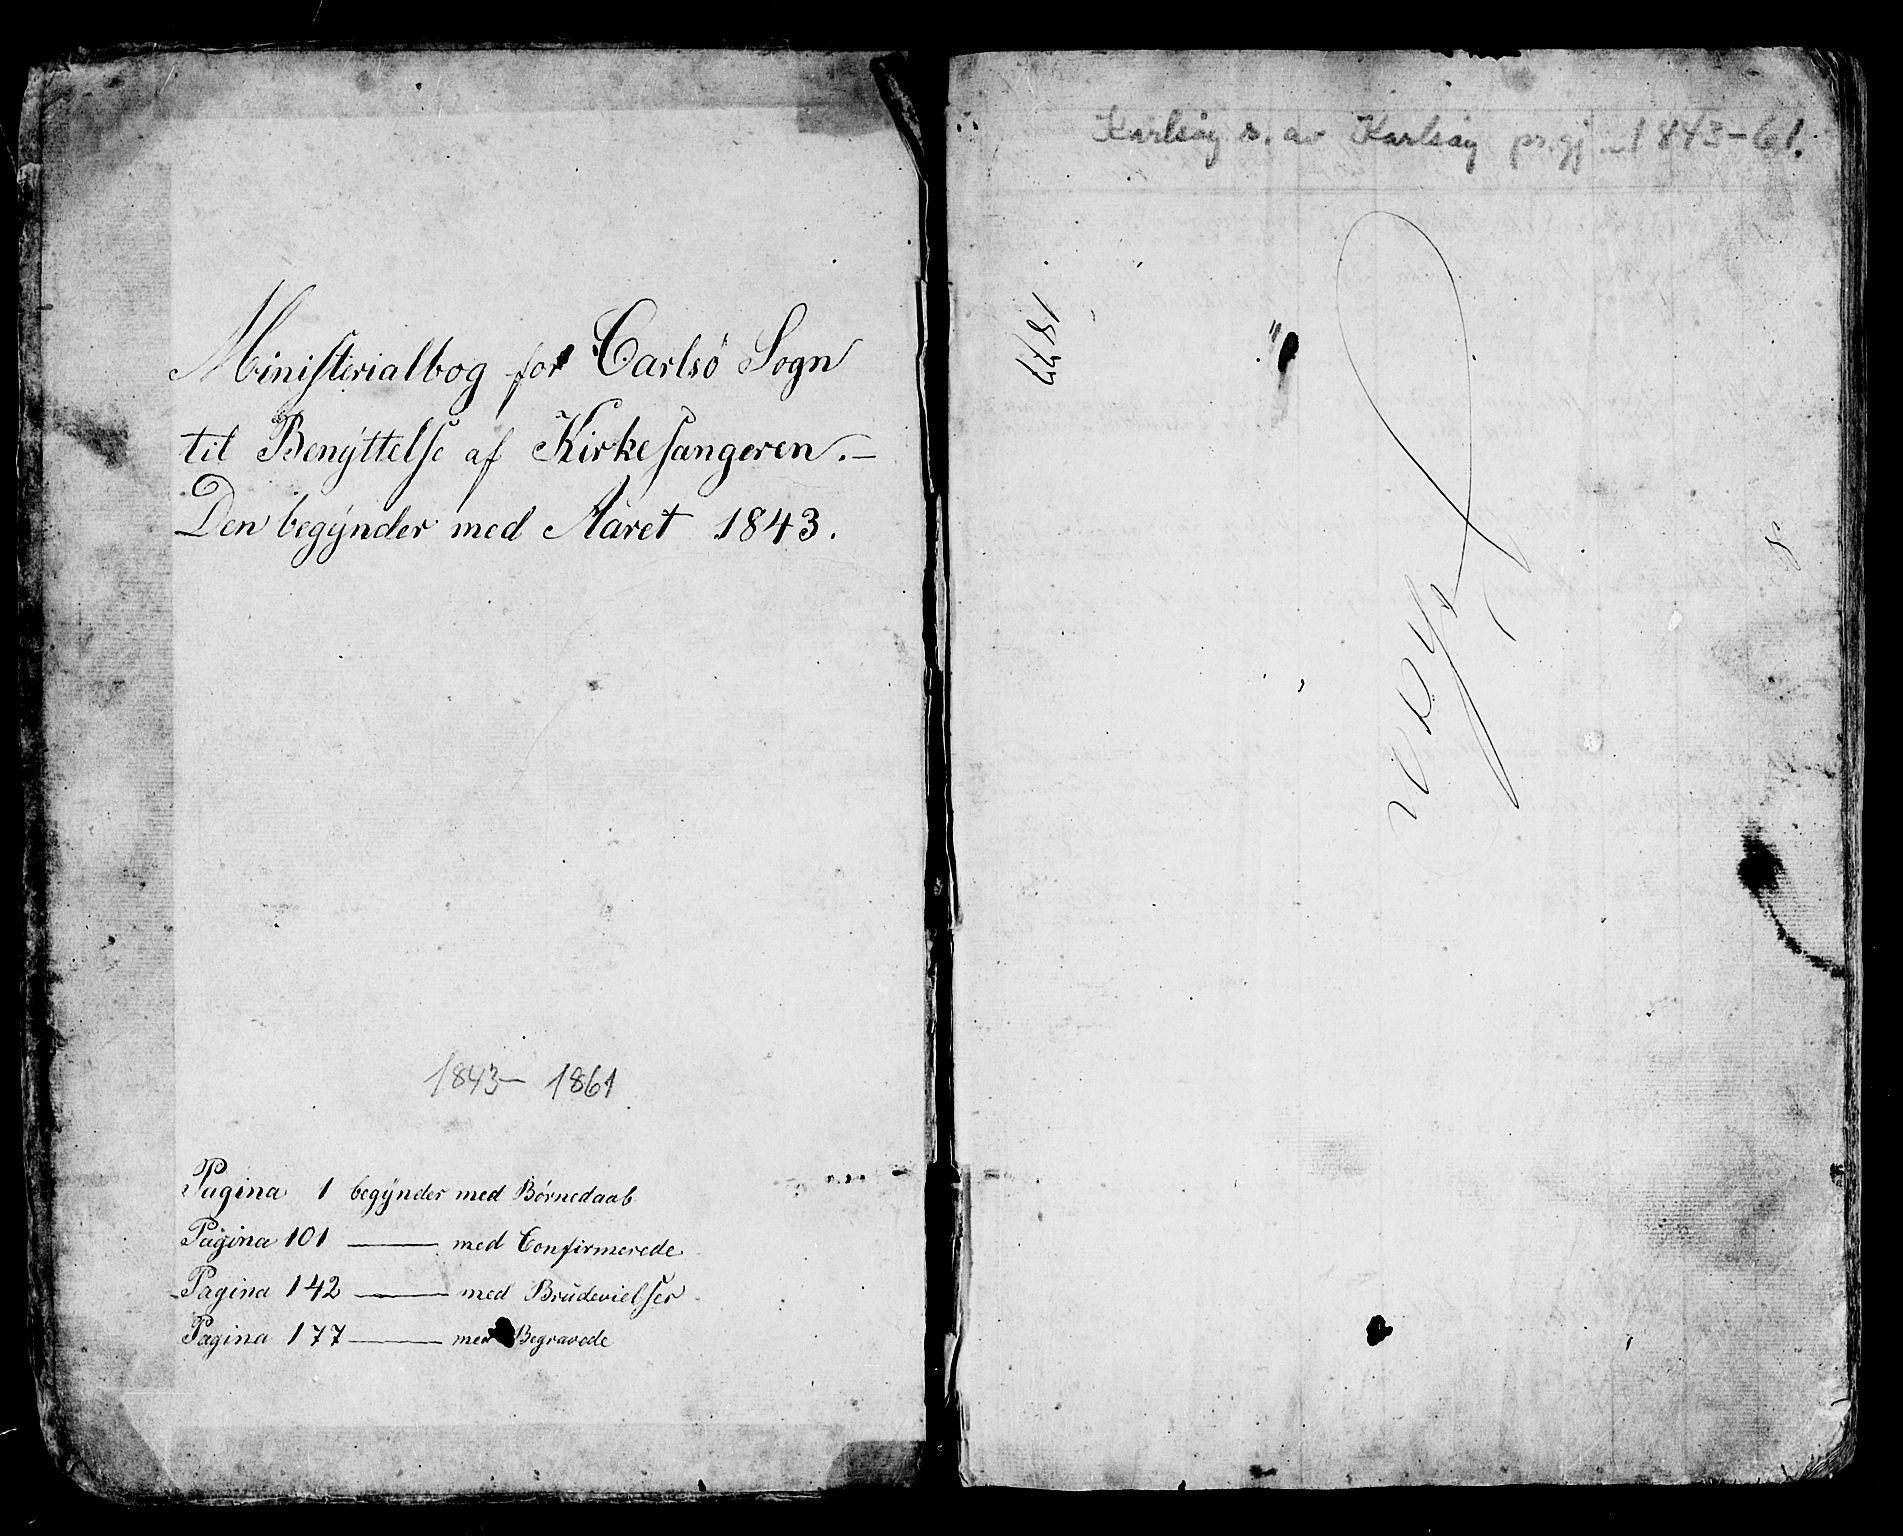 Ministerialbog for Carlsö Sogn
til Benÿttelse af Kirkesangeren.—
Den begÿnder med Aaret 1843.
1843— 1861
Pagina 1 begÿnder med Börnedaab
Pagina 101 ——— med Confirmerede
Pagina 142 ——— med Brudevielser
Pagina 177 ——— med Begravede
Karlsøy s. av Karlsøy prgj. 1843-61.
1877